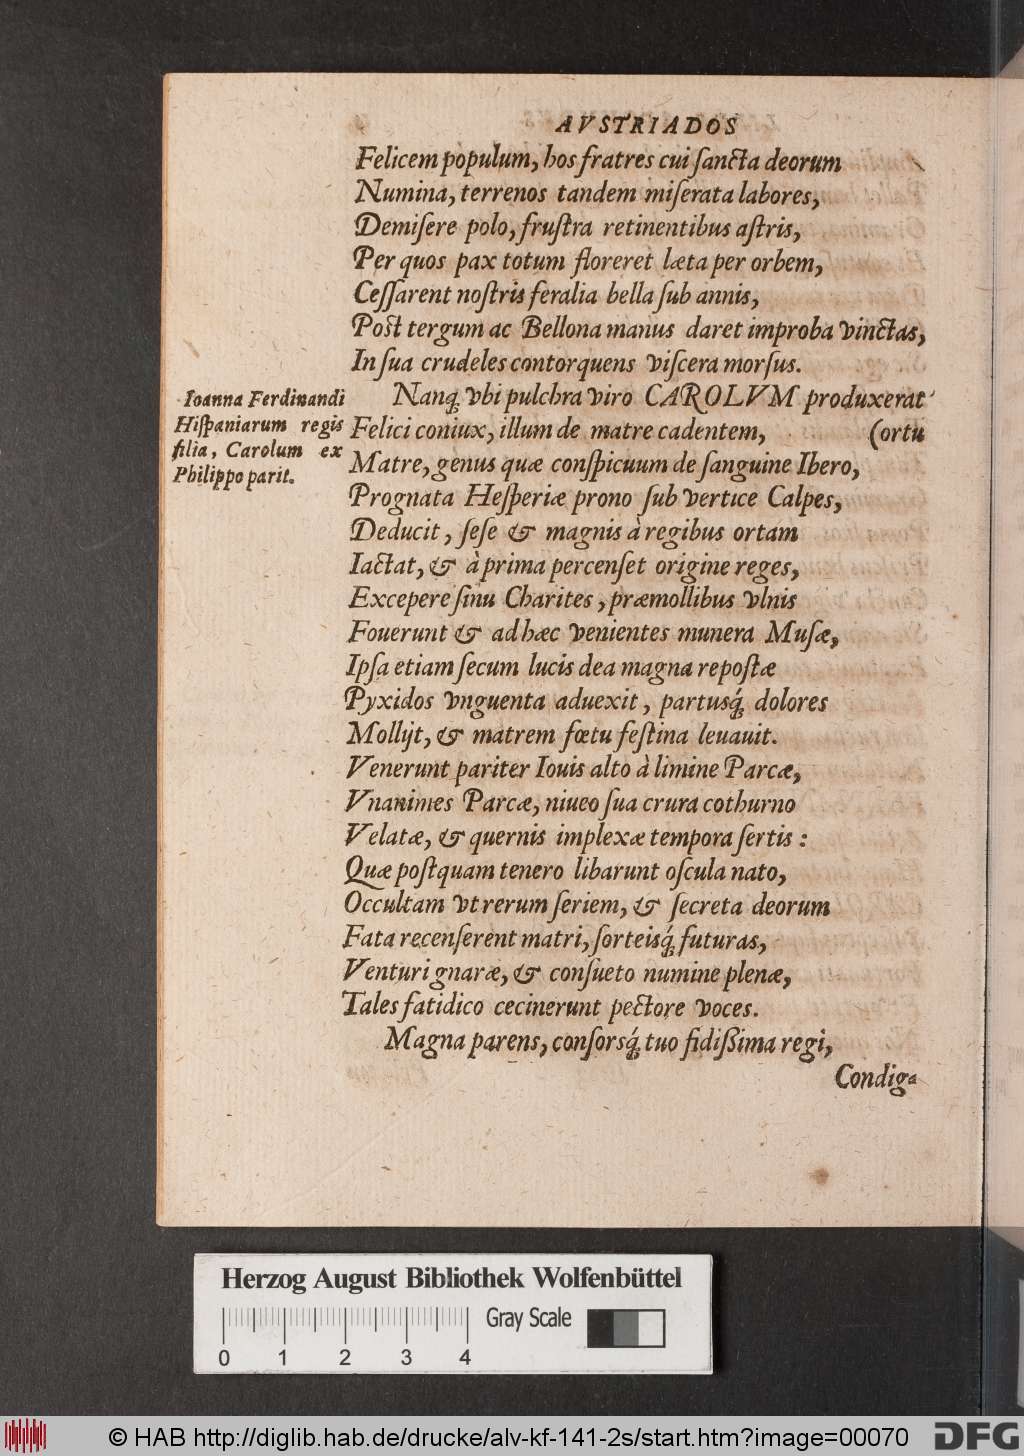 AVSTRIADOS
Felicem populum, hos fratres cui ſancta deorum
Numina, terrenos tandem miſerata labores,
Demiſere polo, fruſtra retinentibus aſtris,
Per quos pax totum floreret læta per orbem,
Ceſſarent noſtris feralia bella ſub annis,
Post tergum ac Bellona manus daret improba vinctas,
In ſua crudeles contorquens viſcera morſus.
Nanq́ vbi pulchra viro CAROLVM produxerat
(ortu
Felici coniux, illum de matre cadentem,
Ioanna Ferdinandi
Hiſpaniarum regis
filia, Carolum ex
Philippo parit.
Matre, genus quæ conſpicuum de ſanguine Ibero,
Prognata Heſperiæ prono ſub vertice Calpes,
Deducit, ſeſe & magnis à regibus ortam
Iactat, & à prima percenſet origine reges,
Excepere ſinu Charites, præmollibus vlnis
Fouerunt & ad hæc venientes munera Muſæ,
Ipſa etiam ſecum lucis dea magna repoſtæ
Pyxidos vnguenta aduexit, partusq́ dolores
Mollijt, & matrem fœtu feſtina leuauit.
Venerunt pariter Iouis alto à limine Parcæ,
Vnanimes Parcæ, niueo ſua crura cothurno
Velatæ, & quernis implexæ tempora ſertis:
Quæ poſtquam tenero libarunt oſcula nato,
Occultam vt rerum ſeriem, & ſecreta deorum
Fata recenſerent matri, ſorteisq́ futuras,
Venturi gnaræ, & conſueto numine plenæ,
Tales fatidico cecinerunt pectore voces.
Magna parens, conſorsq́ tuo fidißima regi,
Condig⸗
Herzog August Bibliothek Wolfenbüttel
Gray Scale
0 1 2 3 4
© HAB http://diglib.hab.de/drucke/alv-kf-141-2s/start.htm?image=00070
DFG